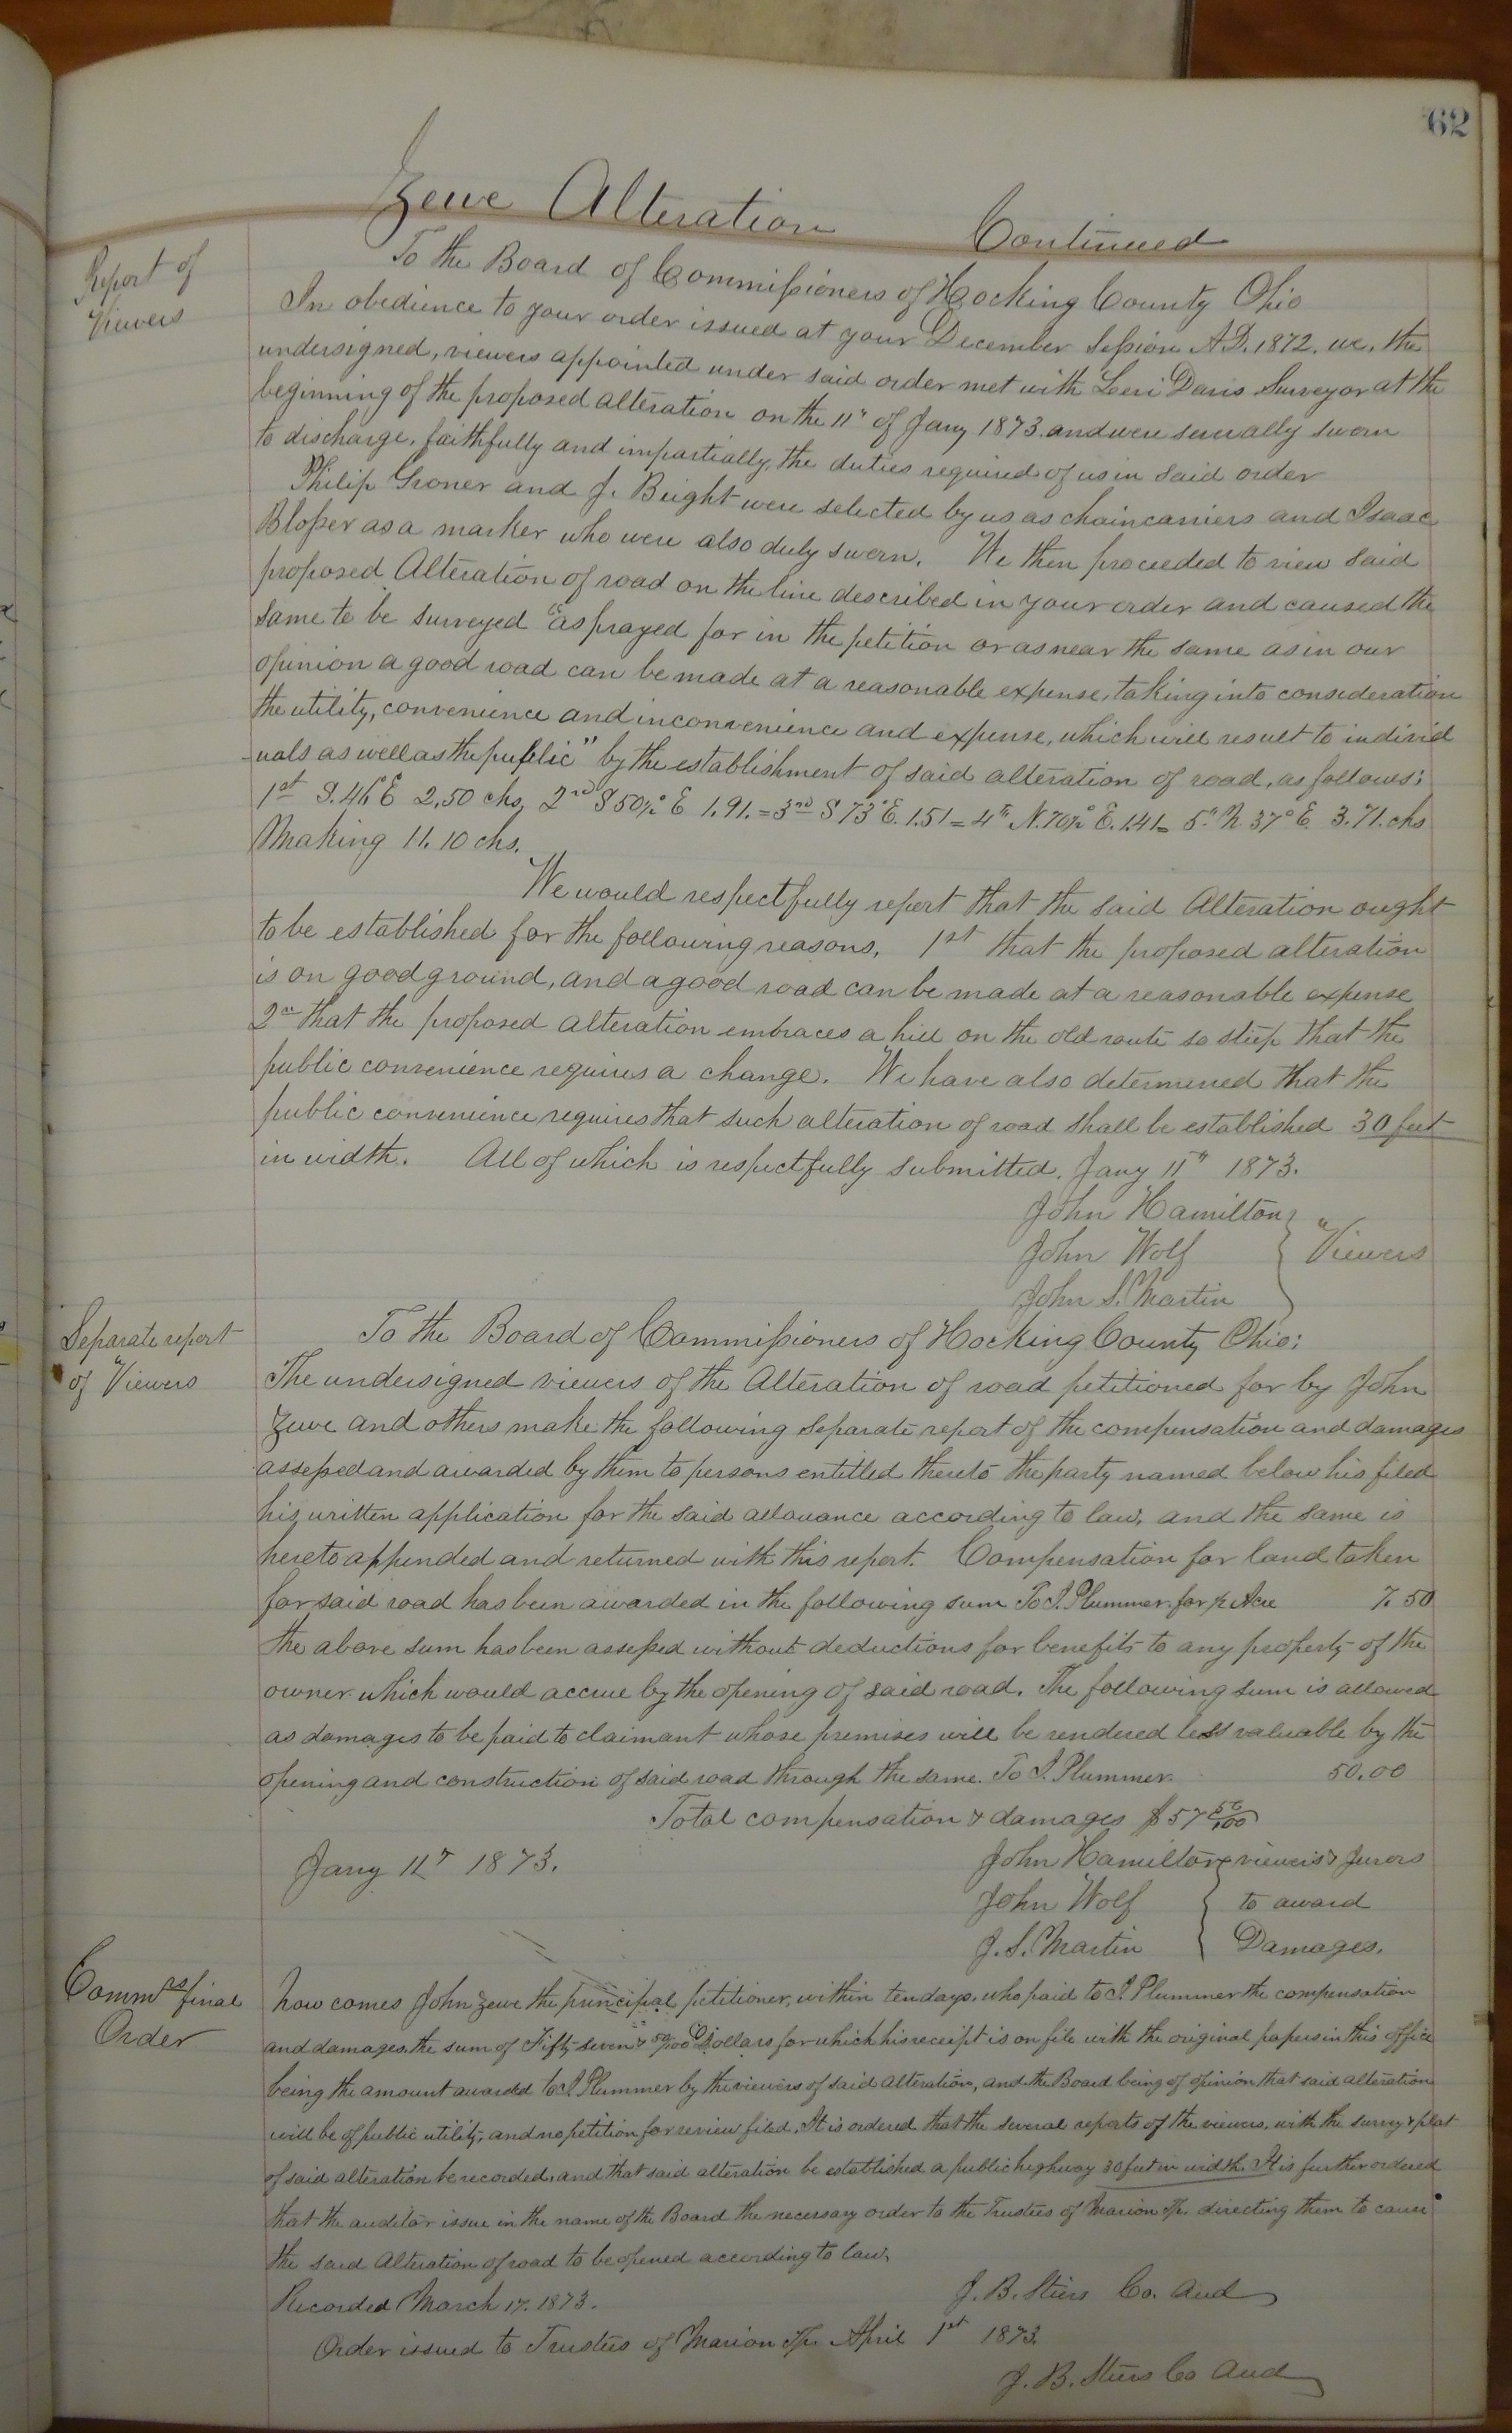 62
Zeve Alteration Continued
Report of
Viewers
To the Board of Commissioners of Hocking County Ohio
In obedience to your order issued at your December Session A.D. 1872. we, the
undersigned, viewers appointed under said order met with Levi Davis Surveyor at the
beginning of the proposed alteration on the 11" of Jany 1873. and were severally sworn
to discharge, faithfully and impartially, the duties required of us in said order
Philip Groner and J. Beight were selected by us as chain carriers and Isaac
Blosser as a marker who were also duly sworn. We then proceeded to view said
proposed Alteration of road on the line described in your order and caused the
same to be surveyed "as prayed for in the petition or as near the same as in our
opinion a good road can be made at a reasonable expense, taking into consideration
the utility, convenience and inconvenience and expense, which will result to individ
-uals as well as the public" by the establishment of said alteration of road, as follows:
1st S. 46° E 2,50 chs, 2nd S 50½° E 1.91. = 3rd S 73° E. 1.51 = 4th N. 70½° E. 1.41 = 5" N. 37° E. 3.71. chs
Making 11.10 chs.
We would respectfully report that the said Alteration ought
to be established for the following reasons, 1st that the proposed alteration
is on good ground, and a good road can be made at a reasonable expense
2nd that the proposed alteration embraces a hill on the old route so steep that the
public convenience requires a change. We have also determined that the
public convenience requires that such alteration of road shall be established 30 feet
in width. All of which is respectfully submitted. Jany 11" 1873.
John Hamilton
John Wolf } Viewers
John S. Martin
Separate report
of Viewers
To the Board of Commissioners of Hocking County Ohio:
The undersigned viewers of the Alteration of road petitioned for by John
Zeve and others make the following Separate report of the compensation and damages
assessed and awarded by them to persons entitled thereto the party named below his filed
his written application for the said allowance according to law, and the same is
hereto appended and returned with this report. Compensation for land taken
for said road has been awarded in the following sum To J. Plummer for ½ Acre 7.50
the above sum has been assessed without deductions for benefits to any property of the
owner which would accrue by the opening of said road. The following sum is allowed
as damages to be paid to claimant whose premises will be rendered less valuable by the
opening and construction of said road through the same. To J. Plummer. 50.00
Total compensation & damages $57 50/100
Jany 11" 1873.
John Hamilton } viewers & Jurors
John Wolf } to award
J. S. Martin } Damages.
Commrs final
Order
Now comes John Zeve the principal petitioner, within ten days, who paid to J. Plummer the compensation
and damages, the sum of Fifty seven & 50/100 Dollars for which his receipt is on file with the original papers in this office
being the amount awarded to J. Plummer by the viewers of said alteration, and the Board being of opinion that said alteration
will be of public utility, and no petition for review filed, It is ordered that the several reports of the viewers, with the survey & plat
of said alteration be recorded, and that said alteration be established a public highway 30 feet in width. It is further ordered
that the auditor issue in the name of the Board the necessary order to the Trustees of Marion Tp. directing them to cause
the said Alteration of road to be opened according to law.
J. B. Stiers Co. Aud
Recorded March 17. 1873.
Order issued to Trustees of Marion Tp. April 1st 1873.
J. B. Stiers Co Aud